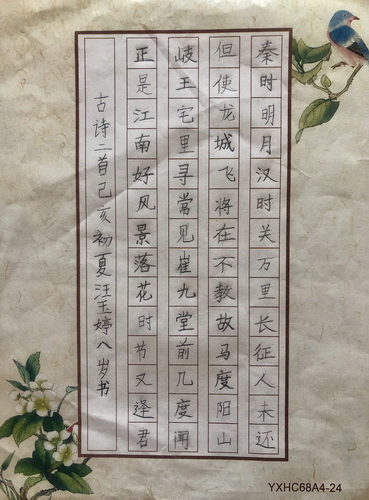 秦时明月汉时关万里长征人未还
但使龙城飞将在不教故马度阳山
岐王宅里寻常见崔九堂前几度闻
正是江南好风景落花时节又逢君
古诗二首己亥初夏汪玉婷八岁书
YXHC68A4-24